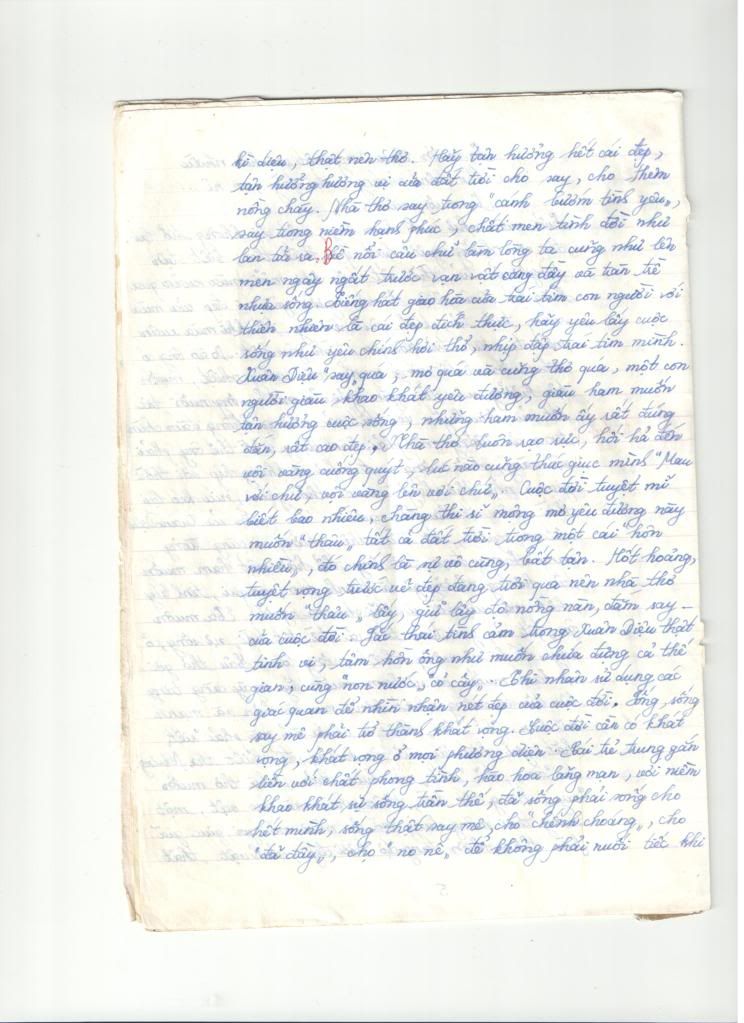 kì diệu, thật nên thơ. Hãy tận hưởng hết cái đẹp,
tận hưởng hương vị của đất trời cho say, cho thêm
nồng cháy. Nhà thơ say trong "cánh bướm tình yêu",
say trong niềm hạnh phúc, chất men tình đời như
lan tỏa ra. Bề nổi câu chữ làm lòng ta cũng như lên
men ngây ngất trước vạn vật căng đầy và tràn trề
nhựa sống. Tiếng hát gào hòa của trái tim con người với
thiên nhiên là cái đẹp đích thực, hãy yêu lấy cuộc
sống như yêu chính hơi thở, nhịp đập trái tim mình.
Xuân Diệu "say" quá, mơ quá và cũng thơ quá, một con
người giàu khao khát yêu đương, giàu ham muốn
tận hưởng cuộc sống, nhưng ham muốn ấy rất đúng
đắn, rất cao đẹp. Nhà thơ luôn rạo rực, hối hả đến
vội vàng cuống quýt, lúc nào cũng thúc giục mình "Mau
với chứ, vội vàng lên với chứ". Cuộc đời tuyệt mĩ
biết bao nhiêu, chàng thi sĩ mộng mơ yêu đương này
muốn "thâu" tất cả đất trời trong một cái "hôn
nhiều", đó chính là sự vô cùng, bất tận. Hốt hoảng,
tuyệt vọng trước vẻ đẹp đang trôi qua nên nhà thơ
muốn "thâu" lấy, giữ lấy độ nồng nàn, đắm say –
của cuộc đời. Sắc thái tình cảm trong Xuân Diệu thật
tinh vi, tâm hồn ông như muốn chứa đựng cả thế
gian, cùng "non nước", "cỏ cây". Thi nhân sử dụng các
giác quan để nhìn nhận nét đẹp của cuộc đời. Sống, sống
say mê phải trở thành khát vọng. Cuộc đời cần có khát
vọng, khát vọng ở mọi phương diện. Cái trẻ trung gắn
liền với chất phong tình, hào hoa lãng mạn, với niềm
khao khát sự sống trần thế, đã sống phải sống cho
hết mình, sống thật say mê, cho "chếnh choáng", cho
"đã đầy", cho "no nê" để không phải nuối tiếc khi